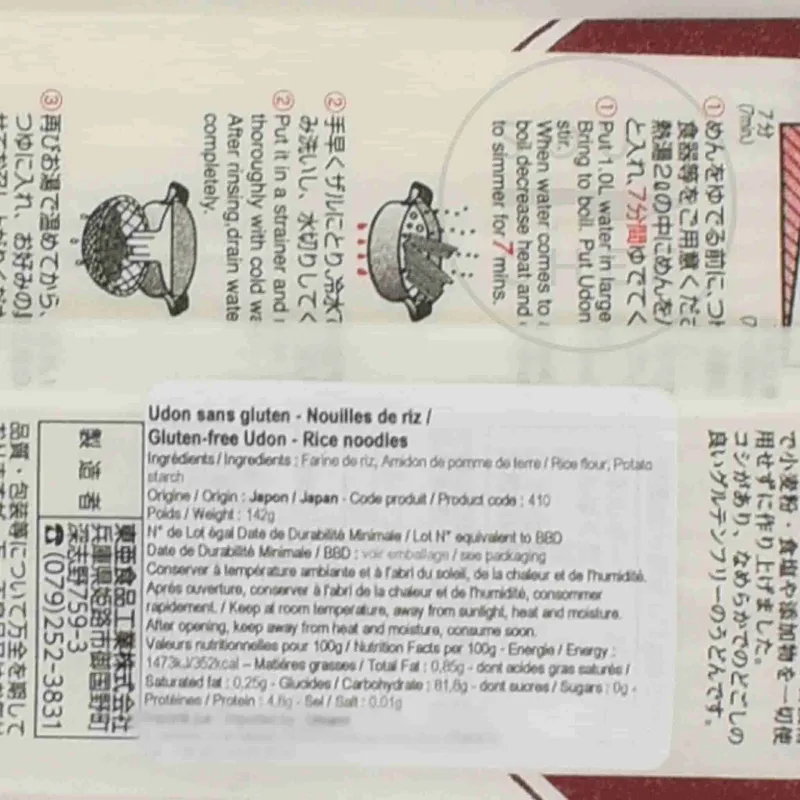 7分
(7min.)
①めんをゆでる前に、つ
食器等をご用意くだ
熱湯2ℓの中にめんを
と入れ、7分間ゆでてく
①Put 1.0L water in large
Bring to boil. Put Udon
stir.
When water comes to
boil decrease heat and
to simmer for 7 mins.
②手早くザルにとり冷水
み洗いし、水切りしてく
②Put it in a strainer and
thoroughly with cold
After rinsing,drain
completely.
③再びお湯で温めてから、
つゆに入れ、お好みの
で小麦粉・食塩や添加物を一切使
用せずに作り上げました。
コシがあり、なめらかでのどごしの
良いグルテンフリーのうどんです。
Udon sans gluten - Nouilles de riz /
Gluten-free Udon - Rice noodles
Ingrédients / Ingredients : Farine de riz, Amidon de pomme de terre / Rice flour, Potato
starch
Origine / Origin : Japon / Japan - Code produit / Product code : 410
Poids / Weight : 142g
N° de Lot égal Date de Durabilité Minimale / Lot N° equivalent to BBD
Date de Durabilité Minimale / BBD : voir emballage / see packaging
Conserver à température ambiante et à l'abri du soleil, de la chaleur et de l'humidité.
Après ouverture, conserver à l'abri de la chaleur et de l'humidité, consommer
rapidement. / Keep at room temperature, away from sunlight, heat and moisture.
After opening, keep away from heat and moisture, consume soon.
Valeurs nutritionnelles pour 100g / Nutrition Facts per 100g - Energie / Energy :
1473kJ/352kcal – Matières grasses / Total Fat : 0,85g - dont acides gras saturés /
Saturated fat : 0,25g - Glucides / Carbohydrate : 81,8g - dont sucres / Sugars : 0g -
Protéines / Protein : 4.8g - Sel / Salt : 0.01g
製造者
東亜食品工業株式会社
兵庫県姫路市御国野町
深志野759-3
☎(079)252-3831
品質・包装等について万全を期して